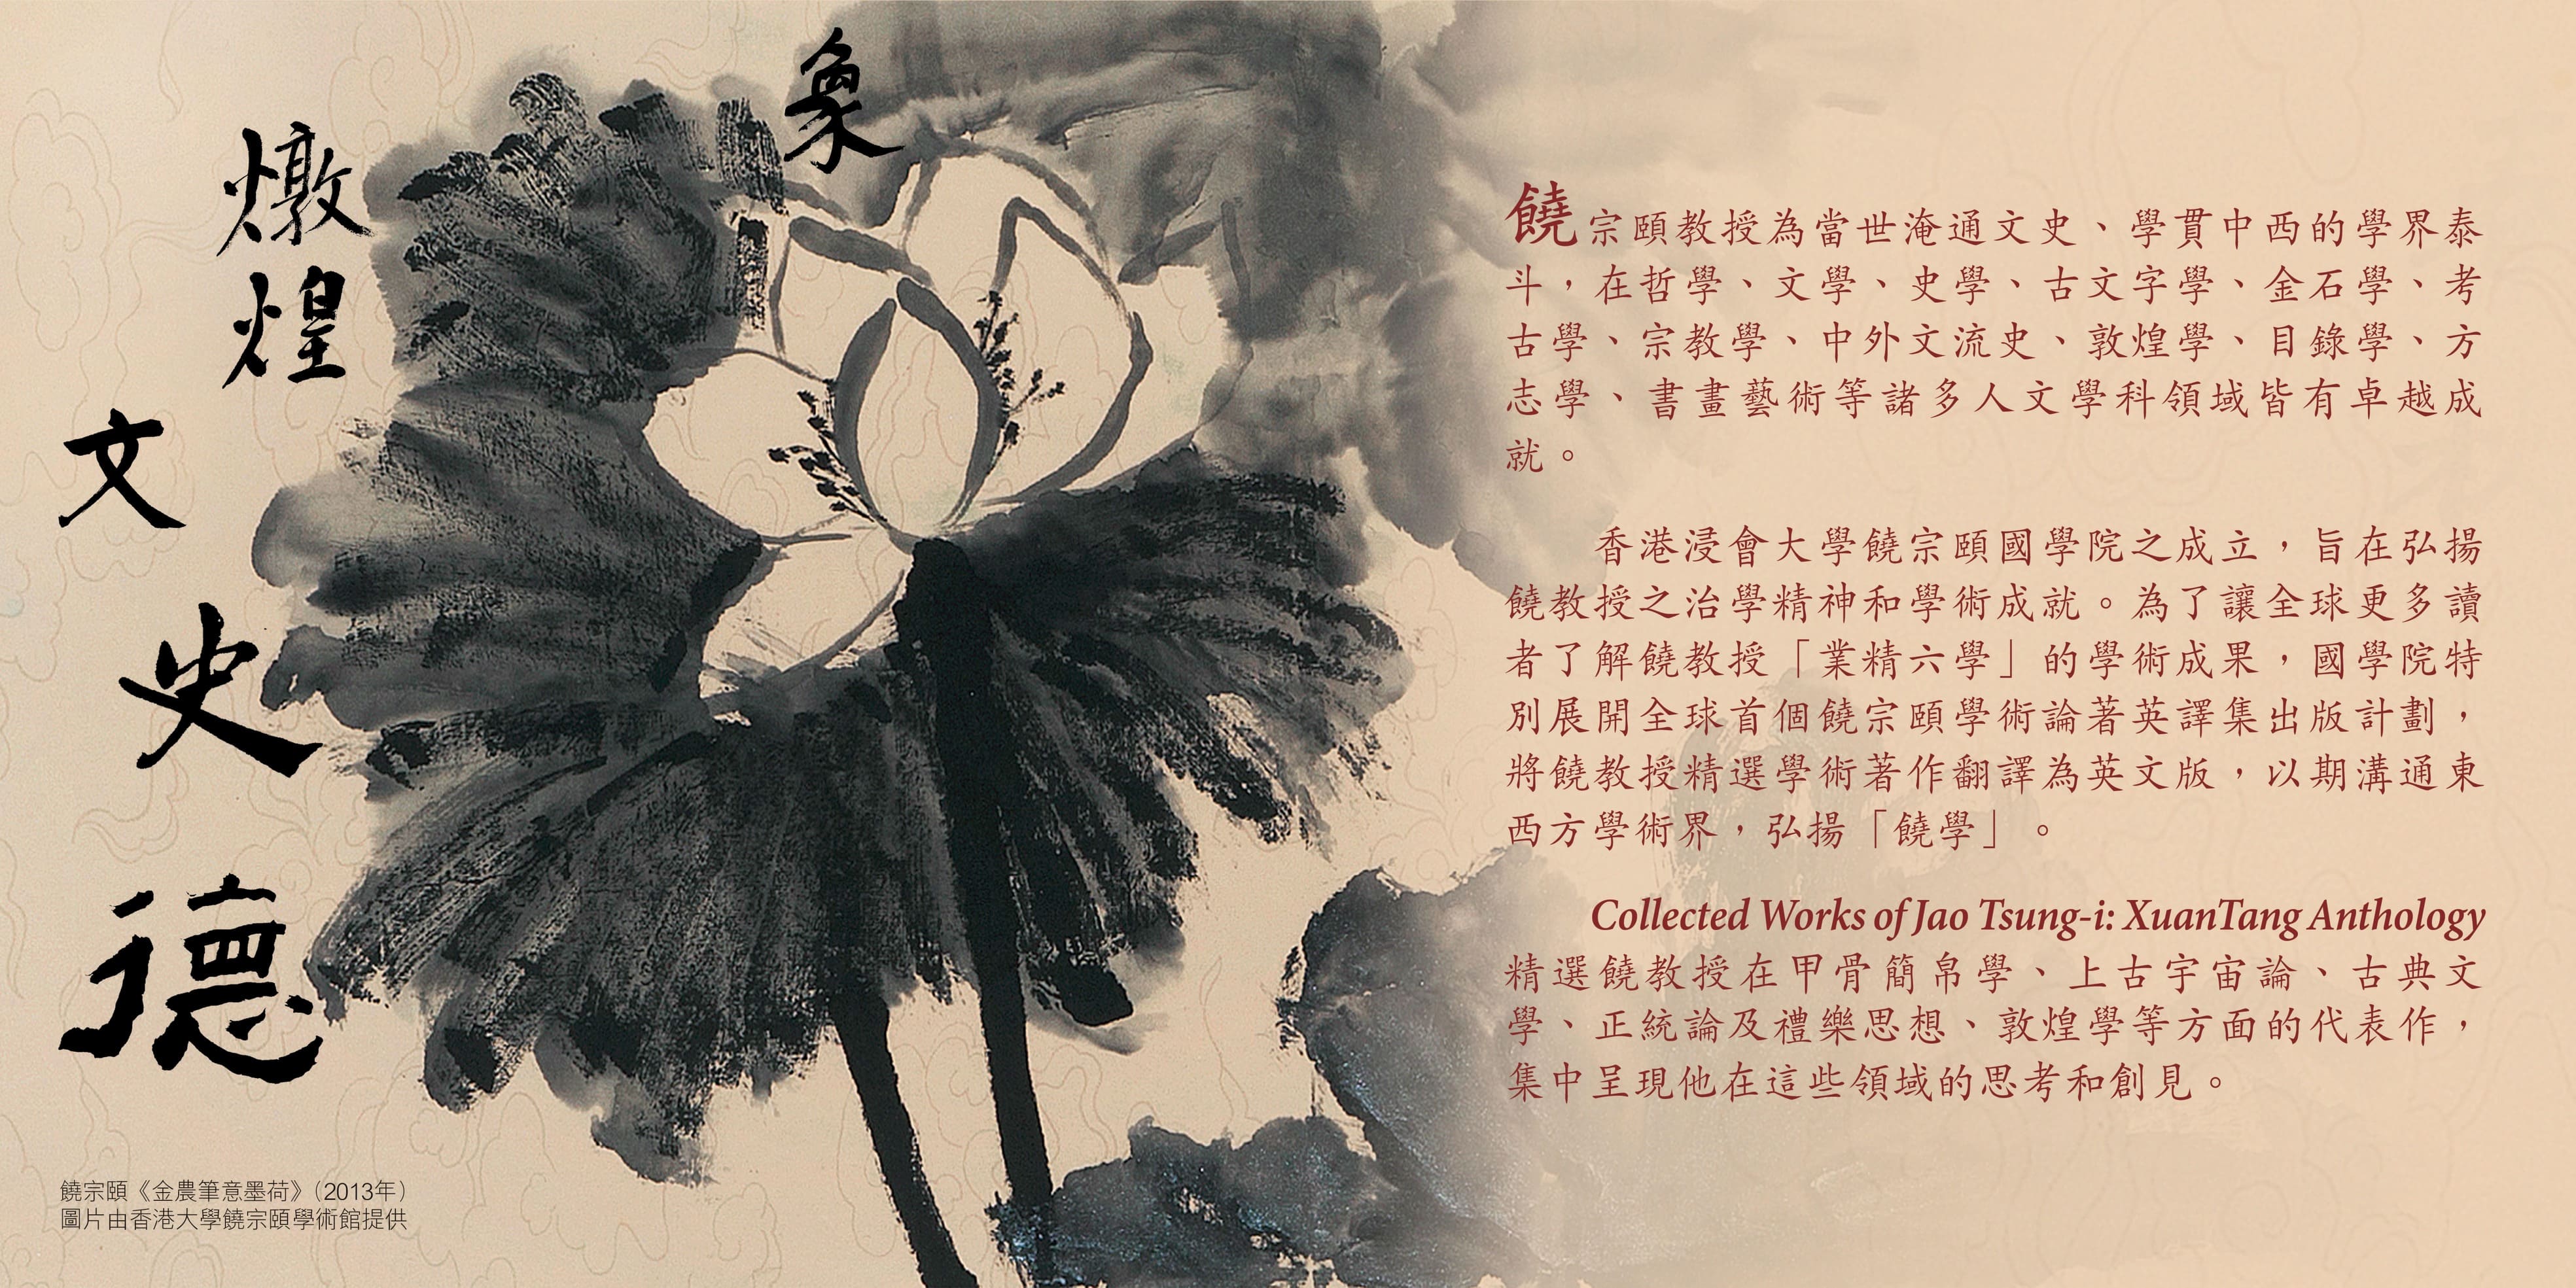 象
燉
煌
文
史
德
饒宗頤教授為當世淹通文史、學貫中西的學界泰
斗，在哲學、文學、史學、古文字學、金石學、考
古學、宗教學、中外文流史、敦煌學、目錄學、方
志學、書畫藝術等諸多人文學科領域皆有卓越成
就。
香港浸會大學饒宗頤國學院之成立，旨在弘揚
饒教授之治學精神和學術成就。為了讓全球更多讀
者了解饒教授「業精六學」的學術成果，國學院特
別展開全球首個饒宗頤學術論著英譯集出版計劃，
將饒教授精選學術著作翻譯為英文版，以期溝通東
西方學術界，弘揚「饒學」。
Collected Works of Jao Tsung-i: XuanTang Anthology
精選饒教授在甲骨簡帛學、上古宇宙論、古典文
學、正統論及禮樂思想、敦煌學等方面的代表作，
集中呈現他在這些領域的思考和創見。
饒宗頤《金農筆意墨荷》（2013年）
圖片由香港大學饒宗頤學術館提供